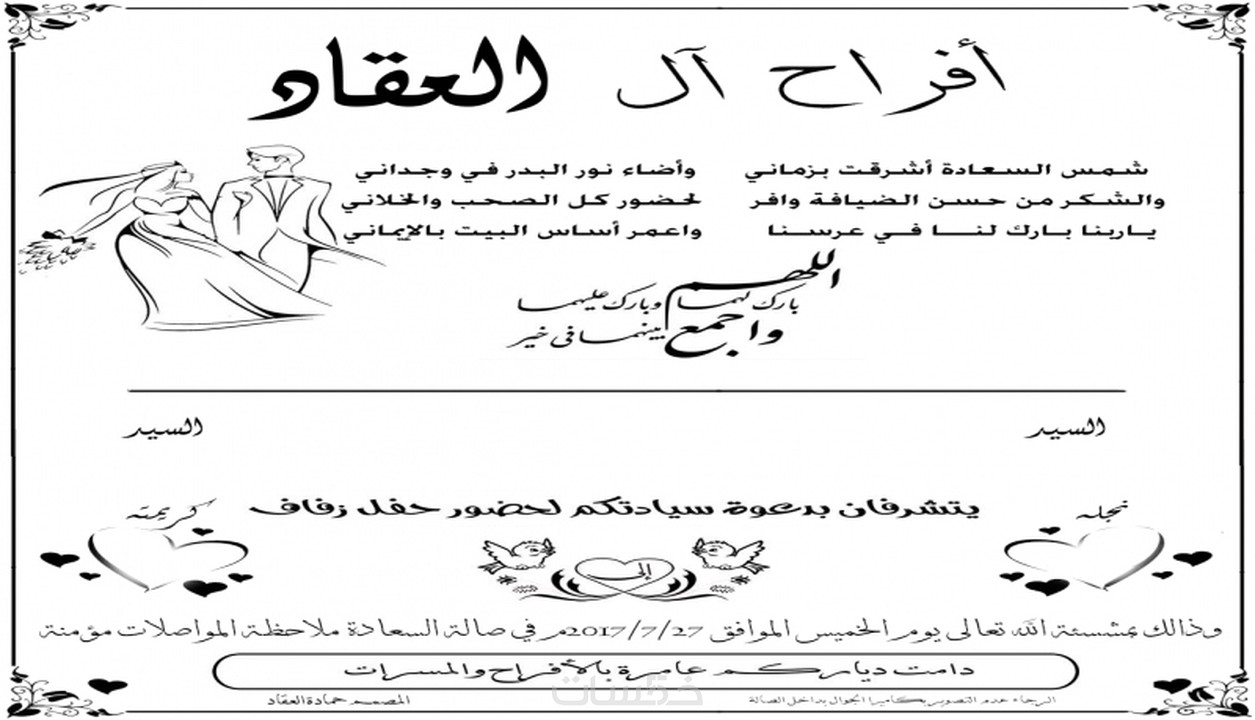 أفراح آل العقاد
شمس السعادة أشرقت بزماني وأضاء نور البدر في وجداني
والشكر من حسن الضيافة وافر لحضور كل الصحب والخلاني
ياربنا بارك لنا في عرسنا واعمر أساس البيت بالإيماني
اللهم
بارك لهما وبارك عليهما
واجمع بينهما في خير
السيد السيد
نجله يتشرفان بدعوة سيادتكم لحضور حفل زفاف كريمته
إلى
وذالك بمشسئة الله تعالى يوم الخميس الموافق 2017/7/27م في صالة السعادة ملاحظة المواصلات مؤمنة
دامت دياركم عامرة بالأفراح والمسرات
خمسات
الرجاء عدم التصوير بكاميرا الجوال بداخل الصالة المصمم حمادة العقاد